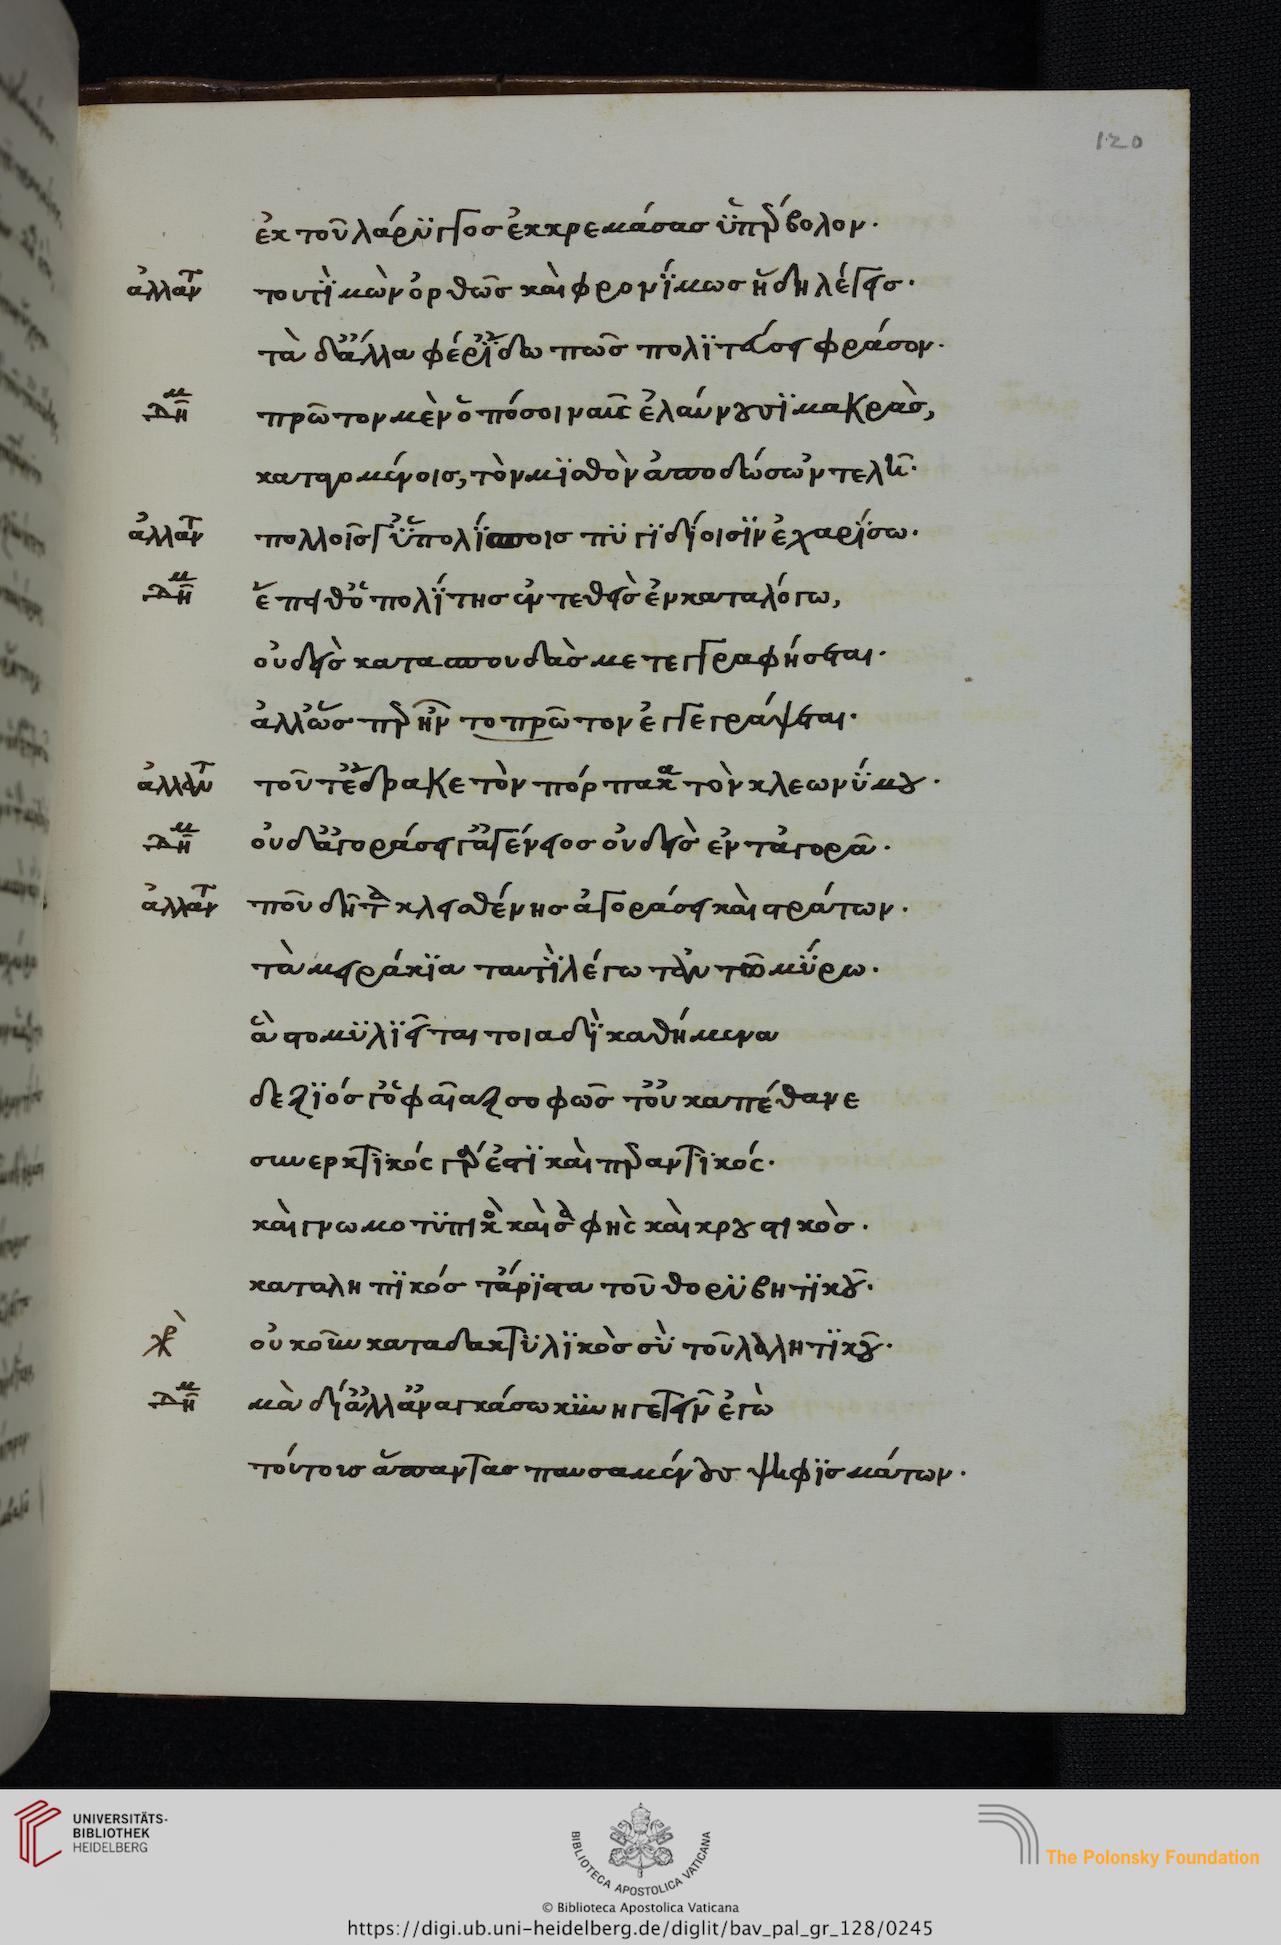 120
ἐκ τοῦ λάρϋγγος ἐκκρεμάσας ὑπέρβολον.
ἀλλαντ τουτὶ μὲν ὀρθῶς καὶ φρονΐμως ἤδη λέγεις.
τὰ δ' ἄλλα φέρ' ἴδω πῶς πολϊτεύσει φράσον.
Δημ πρῶτον μὲν ὁπόσοι ναῦς ἐλαύνουσϊ μακρὰς,
καταγομένοις, τὸν μϊσθὸν ἀποδώσω 'ντελῆ.
ἀλλαντ πολλοῖς γ' ὑπολΐσποις πϋγϊδίοισϊν ἐχαρΐσω.
Δημ ἔπειθ' ὁ πολΐτης ἐντεθεὶς ἐν καταλόγω,
οὐδεὶς κατα σπουδὰς μετεγγραφήσεται.
ἀλλ' ὥσπερ ἦν τοπρῶτον ἐγγεγράψεται.
ἀλλαντ τοῦτ' ἔδρακε τὸν πόρπακα τὸν κλεωνΰμου.
Δημ οὐδ' ἀγοράσει γ' ἀγένειος οὐδεὶς ἐν τἀγορᾶ.
ἀλλαντ ποῦ δῆτα κλεισθένης ἀγοράσει καὶ στράτων.
τὰ μειράκϊα ταυτὶ λέγω τἀν τῶ μΰρω.
ἃ στομϋλϊεῖται τοιαδὶ καθήμενα
δεξϊός γ' ὁ φαῖαξ σοφῶς τ' οὐκ ἀπέθανε
συνερκτϊκός γάρ ἐστϊ καὶ περαντϊκός.
καὶ γνωμοτϋπικὸς καὶ σαφὴς καὶ κρουστικὸς.
καταληπϊκός τ' ἄρϊστα τοῦ θορϋβητϊκοῦ.
χρ οὐκοῦν καταδακτϋλϊκὸς σὺ τοῦ λαλητϊκοῦ.
Δημ μὰ δί' ἀλλ' ἀναγκάσω κϋνηγετεῖν ἐγὼ
τούτοις ἅπαντας παυσαμένους ψηφϊσμάτων.
UNIVERSITÄTS-
BIBLIOTHEK
HEIDELBERG
BIBLIOTECA APOSTOLICA VATICANA
© Biblioteca Apostolica Vaticana
The Polonsky Foundation
https://digi.ub.uni-heidelberg.de/diglit/bav_pal_gr_128/0245